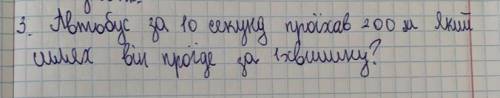 3. Автобус за 10 секунд проїхав 200 м Який
шлях він проїде за 1 хвилину?